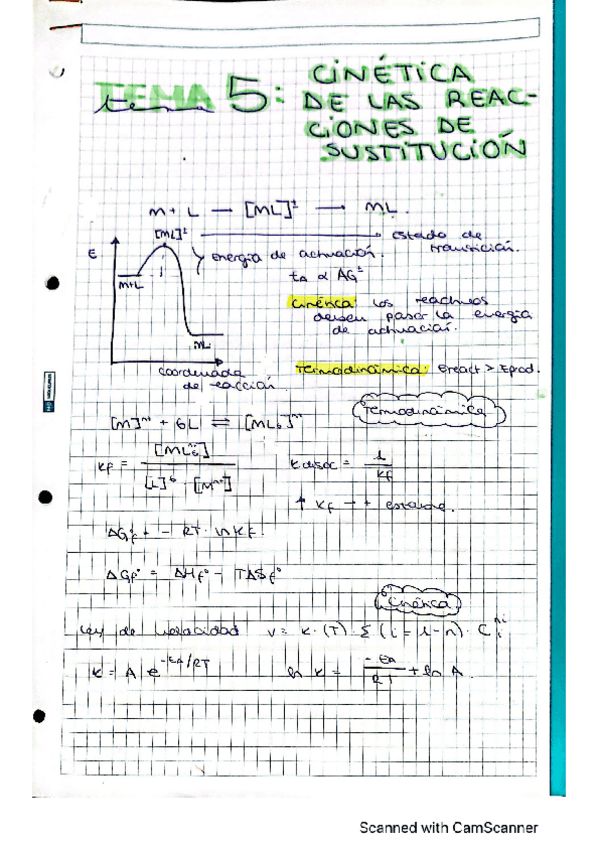 TEMA 5: CINÉTICA
DE LAS REAC-
CIONES DE
SUSTITUCIÓN
M + L → [ML]‡ → ML.
[ML]‡ → Estado de
transición.
E
Energía de activación.
EA α ΔG‡
M+L
Cinética: los reactivos
deben pasar la energía
de activación.
ML
Termodinámica: Ereact > Eprod.
coordenada
de reacción
Termodinámica
[M]ⁿ⁺ + 6L ⇌ [ML6]ⁿ⁺
Kf = [ML6ⁿ⁺] / [L]⁶ · [Mⁿ⁺]
Kdisoc = 1 / Kf
↑ Kf → + estable.
ΔGf° = - RT · ln Kf.
ΔGf° = ΔHf° - TΔSf°
Cinética
Ley de velocidad v = K · (T) · Σ (i = 1 - n) · Ci ⁿⁱ
K = A e^-EA/RT
ln K = -EA / RT + ln A.
Scanned with CamScanner